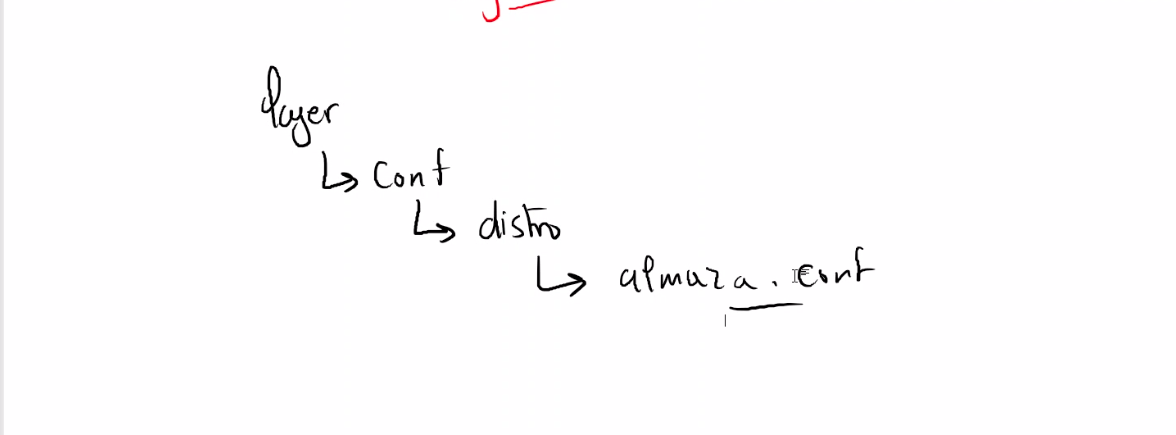 layer
↳ conf
↳ distro
↳ almaza.conf